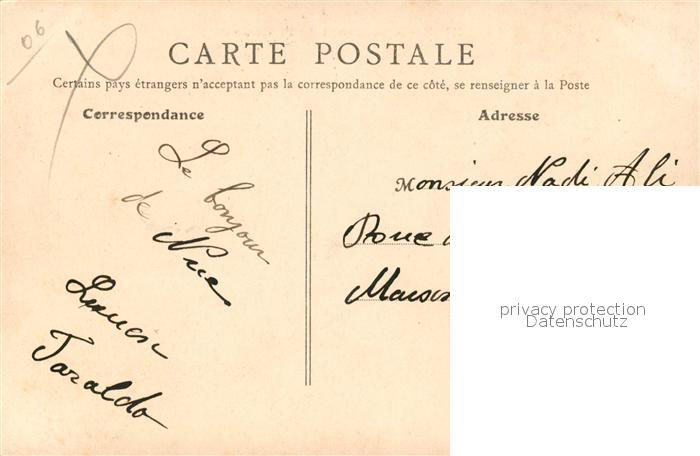 06
CARTE POSTALE
Certains pays étrangers n'acceptant pas la correspondance de ce côté, se renseigner à la Poste
Correspondance
Le bonjour
de Nice
Lucien
Taraldo
Adresse
Monsieur Nadi Ali
privacy protection
Datenschutz